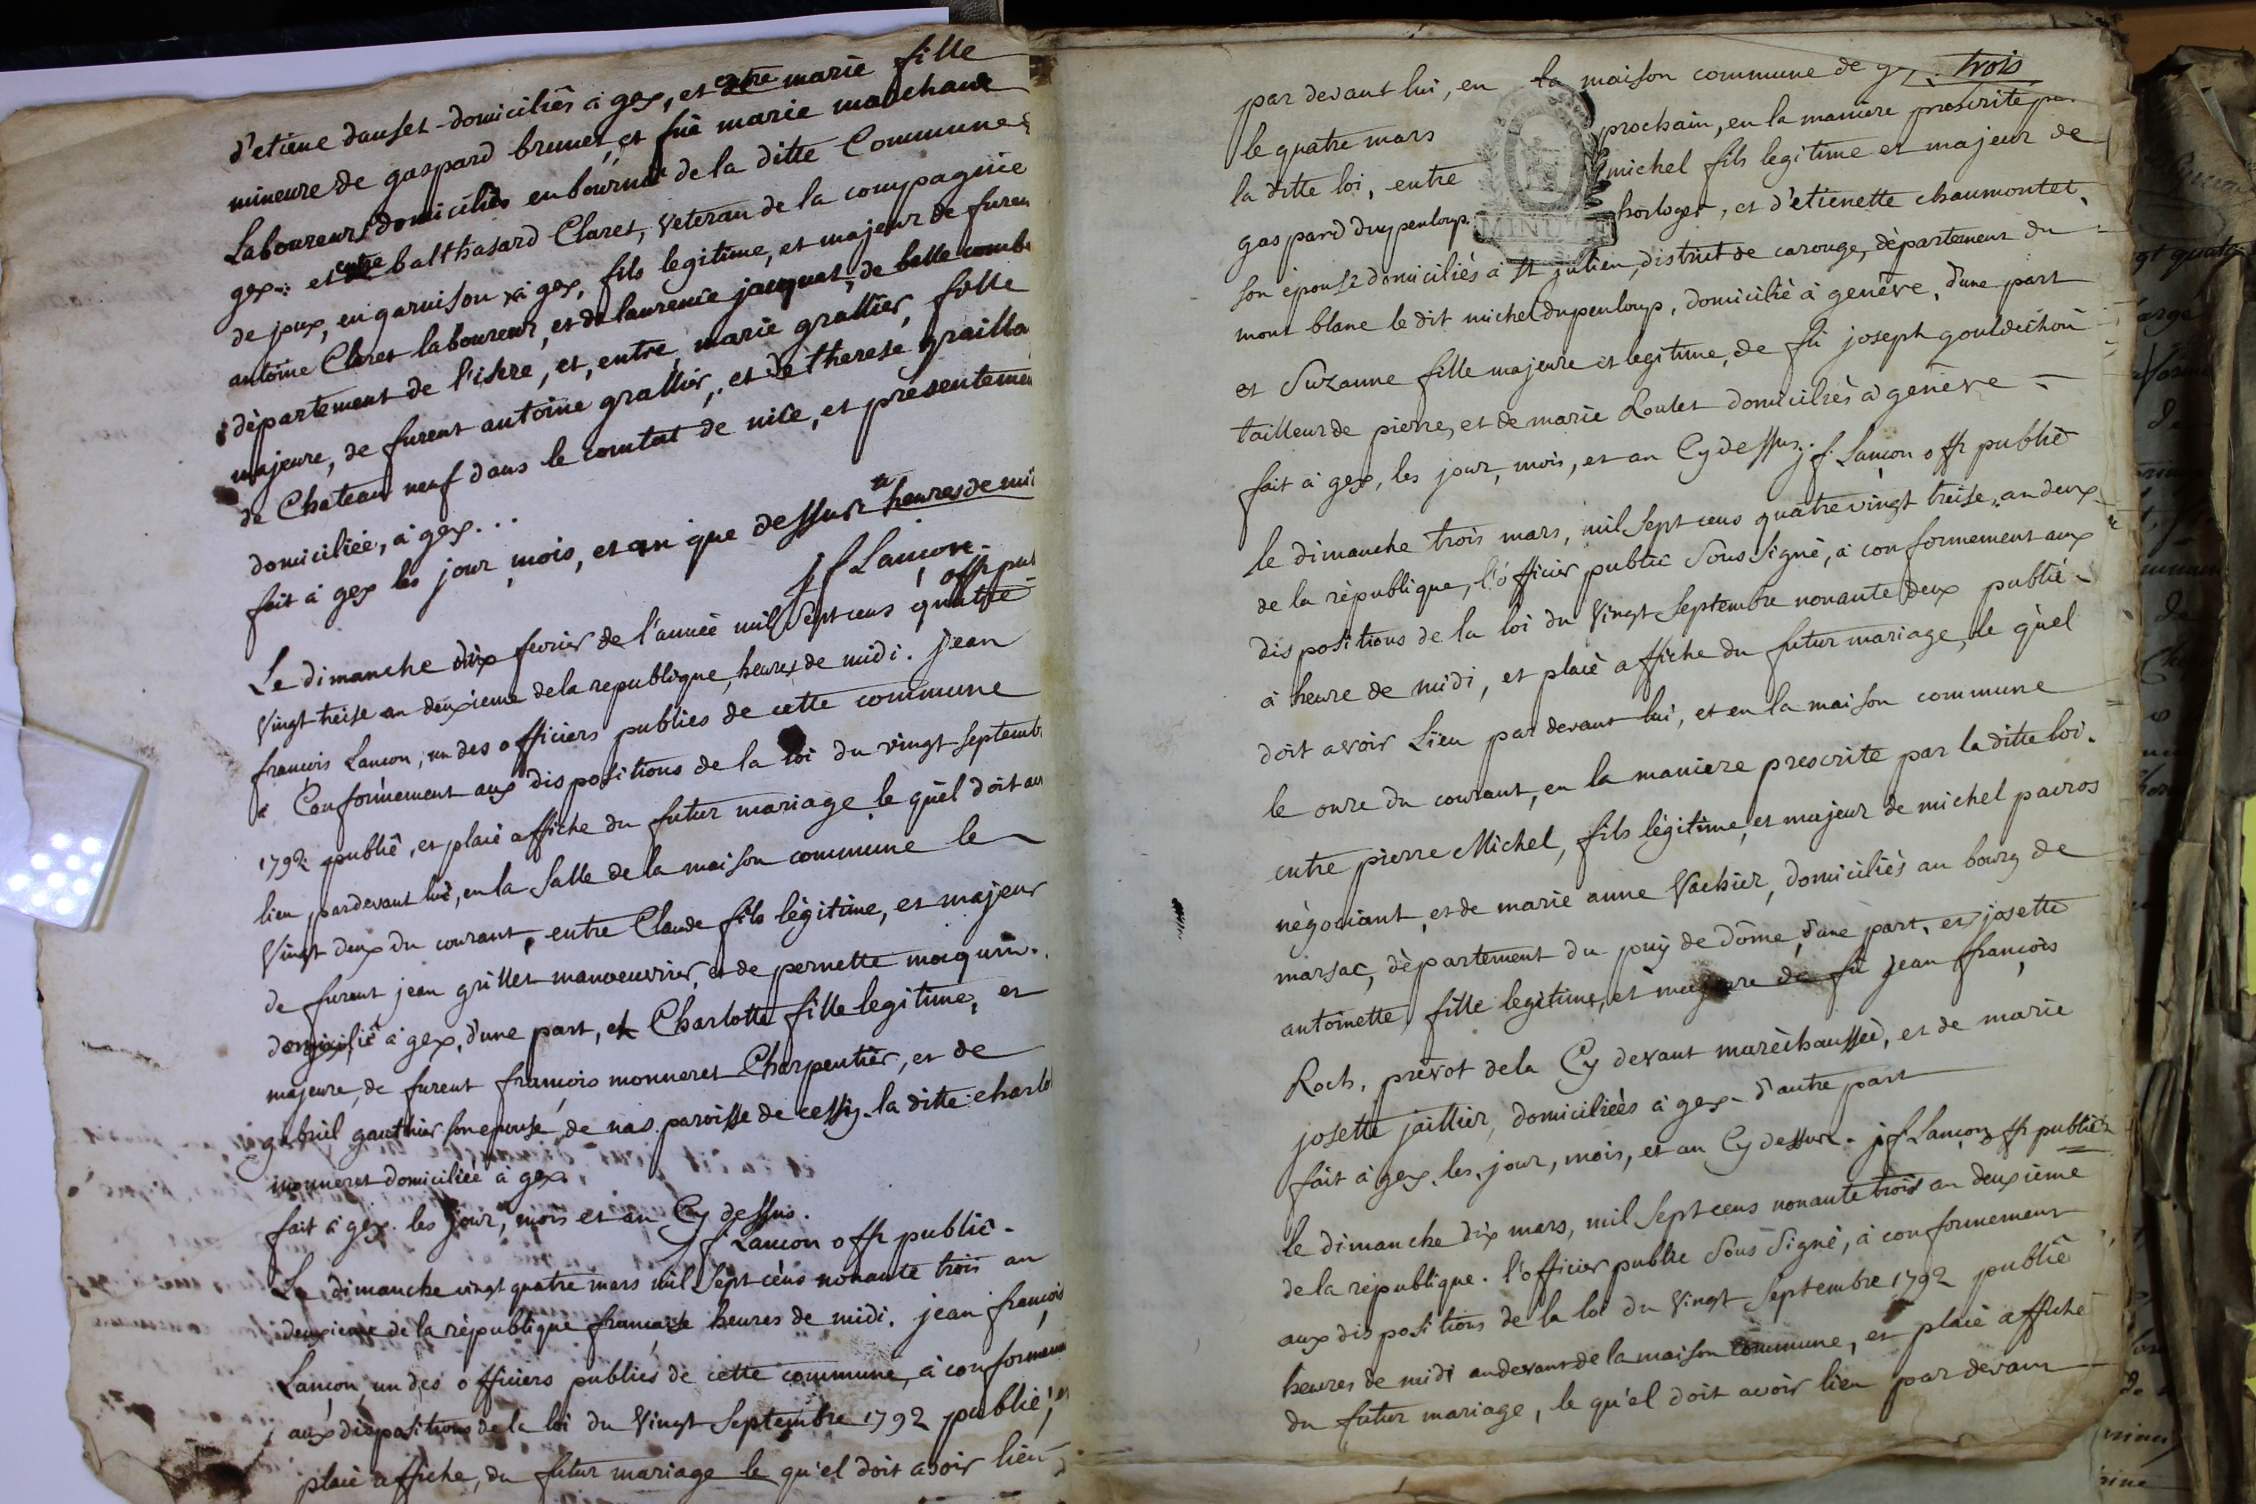 d'etiene dauset domiciliés à gex, et entre marie fille
mineure de gaspard brunet, et fûe marie marchand
Laboureurs domiciliés en bournu de la ditte Commune
gex : et entre balthasard Claret, Veteran de la compagnie
de joux, en garnison à gex, fils legitime, et majeur de furent
antoine Claret laboureur, et de laurence jacquet, de belle combe
dèpartement de l'isere, et, entre, marie grallier, fille
majeure, de furent antoine grallier, et de therese grailla
de Chateau neuf dans le comtat de nice, et presenteme
domiciliée, à gex...
fait à gex les jour, mois, et an que dessus à heures de midi
jf Lançon
offr publ
Le dimanche dix fevrier de l'année mil Sept cens quatre
Vingt treise an deuxieme de la republique, heures de midi. jean
françois Lançon, un des officiers publics de cette commune
à Conformement aux dispositions de la loi du vingt septemb
1792 publié, et placé affiche du futur mariage le quèl doit av
lieu pardevant lui, en la Salle de la maison commune le
Vingt deux du courant, entre Claude fils lègitime, et majeur
de furent jean grillet manoeuvrier, et de pernette moquin.
domicilié à gex, d'une part, et Charlotte fille legitime, et
majeure, de furent françois monneret Charpentier, et de
gabriel gauthier son epouse, de nas paroisse de cessy. la ditte charlo
monneret domiciliée à gex.
fait à gex. les jour, mois et an Cy dessus.
jf Lancon offr public.
Le dimanche vingt quatre mars mil Sept cèns nonante trois an
deuxieme de la république francaise heures de midi. jean françois
Lançon un des officiers publics de cette commune, à conformeme
aux dispositions de la loi du Vingt Septembre 1792 publié, et
placé affiche, du futur mariage le qu'el doit avoir lieu
trois
par devant lui, en la maison commune de gex
le quatre mars prochain, en la maniere prescrite par
la ditte loi, entre michel fils legitime et majeur de
gaspard dupenloup horloger, et d'étienette chaumontet,
MINUTE
son èpouse domiciliés à St julien, district de carouge, département du
mont blanc le dit michel dupenloup, domicilié à genève, d'une part
et Suzanne fille majeure et legitime, de fû joseph gouldechou
tailleur de pierre, et de marie Loulet domiciliés à genève
fait à gex, les jour, mois, et an Cy dessus. jf Lançon offr public
le dimanche trois mars, mil Sept cens quatre vingt treise, an deux
de la rèpublique, l'officier public Sous signé, à conformement aux
dispositions de la loi du Vingt Septembre nonante deux publié
à heure de midi, et placé affiche du futur mariage, le quèl
doit avoir Lieu par devant lui, et en la maison commune
le onze du courant, en la maniere prescrite par la ditte loi.
entre pierre Michel, fils légitime, et majeur de michel pavros
négociant, et de marie anne Vachier, domiciliés au bourg de
marsac, dèpartement du puy de Dôme, d'une part, et, josette
antoinette, fille legitime, et majeure de fû jean françois
Roch, prévot de la Cy devant marèchaussée, et de marie
josette jaillier, domiciliées à gex d'autre part
fait à gex, les jour, mois, et an Cy dessus. jf Lançon offr public
le dimanche dix mars, mil Sept cens nonante trois an deuxième
de la rèpublique. l'officier public Sous Signé, à conformement
aux dispositions de la loi du Vingt Septembre 1792 publié
heures de midi au devant de la maison commune, et placé affiche
du futur mariage, le qu'el doit avoir lieu par devant